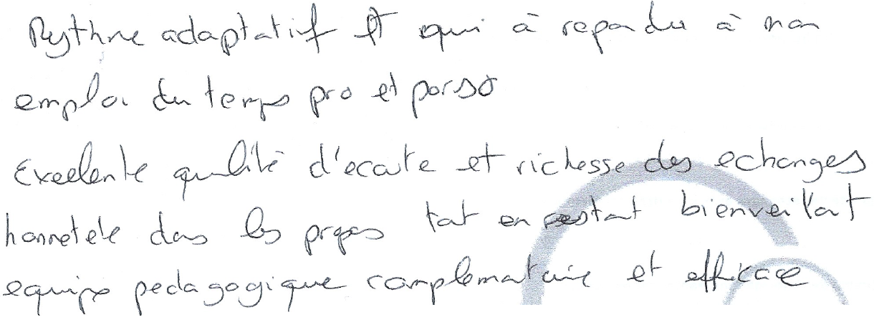 Rythme adaptatif et qui à repondu à mon
emploi du temps pro et perso
Excelente qualité d'ecoute et richesse des echanges
honneteté dans les propos tout en restant bienveillant
equipe pedagogique complementaire et efficace